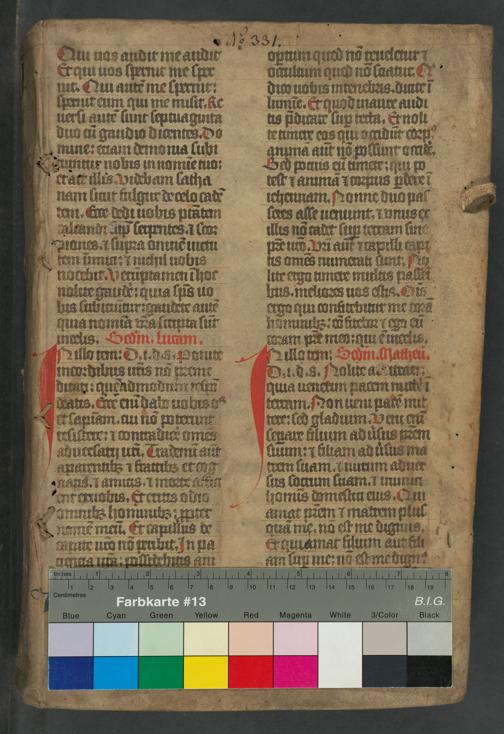 No 331.
Qui uos audit me audit
Et qui uos spernit me sper
nit. Qui autē me spernit:
spernit eum qui me misit. Re
uersi autē sunt septuaginta
duo cū gaudio dicentes. Do
mine: etiam demonia subi
ciuntur nobis in nomine tuo:
et ait illis. Videbam satha
nam sicut fulgur de celo cadē
tem. Ecce dedi uobis ptātem
calcandi sup serpentes. ⁊ scor
piones. ⁊ supra omnē uirtu
tem inimici: ⁊ nichil uobis
nocebit. Verūptamen ī hoc
nolite gaudē: quia sp̄s uo
bis subiciunt̄: gaudete autē
quia nomīa vr̄a scripta sūt
in celis. Scdm. lucam.
In illo tem: D. i. d. s. Ponite
in cordibus uris nō preme
ditari: quēadmodum respō
deatis. Ego eni dabo uobis os
et sapiam. cui nō poterunt
resistere: ⁊ contradicē omēs
aduersarij urī. Trademī aut
a parentibꝫ ⁊ fratribꝫ et cog
natis. ⁊ amicis. ⁊ morte affici
ent ex uobis. Et eritis odio
omnibꝫ hominibꝫ: ppter
nomē meū. Et capillus de
capite uro nō peribit. In pa
tientia ura: possidebitis ani
optum quod nō reueletur ⁊
occultum quod nō sciatur. Q
dico uobis in tenebris. dicite ī
lumīe. Et quod in aure audi
tis p̄dicate sup tecta. Et noli
te timere eos qui occidūt corp⁹
anima aūt nō possunt occidē.
Sed pocius eū timete: qui po
test ⁊ animā ⁊ corpus pdere ī
iehennam. Nonne duo pas
seres asse ueniunt. ⁊ unus ex
illis nō cadet sup terram sine
pr̄e uro. Vri aūt ⁊ capilli capi
tis omēs numerati sunt. No
lite ergo timere multis passeri
bus. meliores uos estis. Ois
ergo qui confitebitur me corā
hominibꝫ: cōfitebor ⁊ ego eū
coram pr̄e meo: qui ē in celis.
In illo tem; Scdm. Matheū.
D. i. d. s. Nolite arbitrari:
quia uenerim pacem mittē ī
terram. Non veni pacē mit
tere: sed gladium. Veni eni
separe filium ad ūsus prem
suum: ⁊ filiam ad ūsus ma
trem suam. ⁊ nurum aduer
sus socrum suam. ⁊ inimici
homīs domestici eius. Qui
amat prēm ⁊ matrem plus
quā me. no est me dignus.
Et qui amat filium aut fili
am sup me: no est me dign⁹
Inches 1 2 3 4 5 6 7 8
Centimetres 1 2 3 4 5 6 7 8 9 10 11 12 13 14 15 16 17 18 19
Farbkarte #13 B.I.G.
Blue Cyan Green Yellow Red Magenta White 3/Color Black